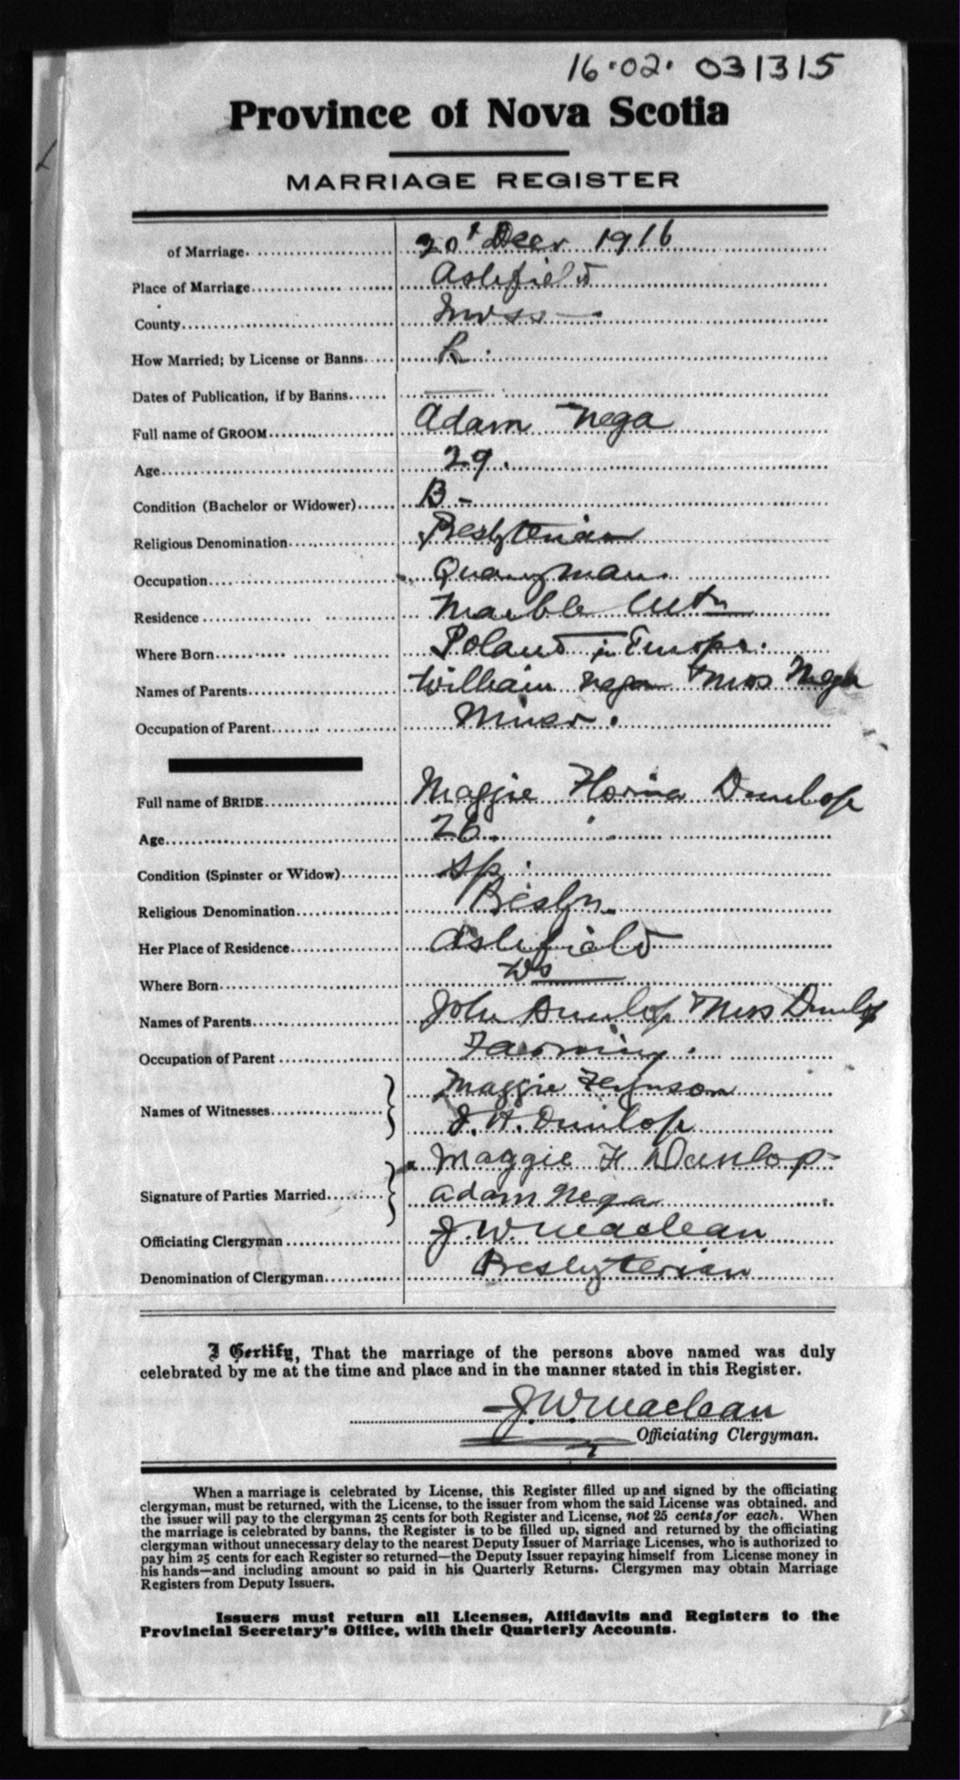 16.02. 031315
Province of Nova Scotia
MARRIAGE REGISTER
of Marriage 20t Decr 1916
Place of Marriage Ashfield
County Invss
How Married; by License or Banns L
Dates of Publication, if by Banns
Full name of GROOM Adam Nega
Age 29.
Condition (Bachelor or Widower) B -
Religious Denomination Presbyterian
Occupation Quarryman.
Residence Marble Mtn
Where Born Poland in Europe.
Names of Parents William Nega + Mrs Nega
Occupation of Parent Miner.
Full name of BRIDE Maggie Florina Dunlop
Age 26.
Condition (Spinster or Widow) Sp.
Religious Denomination Presbyn.
Her Place of Residence Ashfield
Where Born Do
Names of Parents John Dunlop + Mrs Dunlop
Occupation of Parent Farming.
Maggie Ferguson
Names of Witnesses
J. H. Dunlop
Maggie F Dunlop
Signature of Parties Married Adam Nega
Officiating Clergyman J. W. Maclean
Denomination of Clergyman Presbyterian
I Certify, That the marriage of the persons above named was duly
celebrated by me at the time and place and in the manner stated in this Register.
J. W. Maclean
Officiating Clergyman.
When a marriage is celebrated by License, this Register filled up and signed by the officiating
clergyman, must be returned, with the License, to the issuer from whom the said License was obtained, and
the issuer will pay to the clergyman 25 cents for both Register and License, not 25 cents for each. When
the marriage is celebrated by banns, the Register is to be filled up, signed and returned by the officiating
clergyman without unnecessary delay to the nearest Deputy Issuer of Marriage Licenses, who is authorized to
pay him 25 cents for each Register so returned—the Deputy Issuer repaying himself from License money in
his hands—and including amount so paid in his Quarterly Returns. Clergymen may obtain Marriage
Registers from Deputy Issuers.
Issuers must return all Licenses, Affidavits and Registers to the
Provincial Secretary's Office, with their Quarterly Accounts.